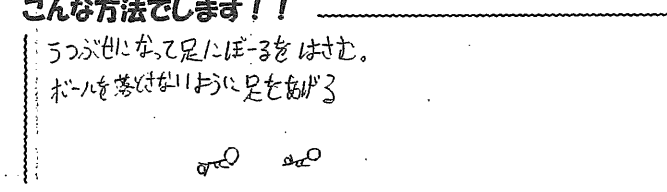 こんな方法でします！！
うつぶせになって足にぼーるをはさむ。
ボールを落とさないように足をあげる